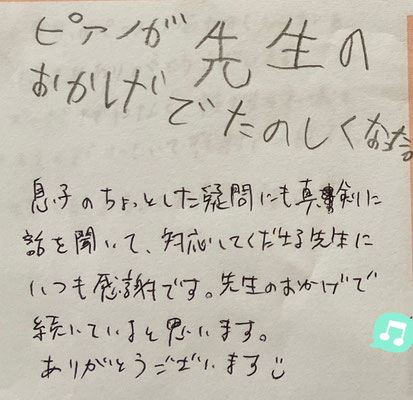 ピアノが先生の
おかげでたのしくなった
息子のちょっとした疑問にも真剣に
話を聞いて、対応してくださる先生に
いつも感謝です。先生のおかげで
続いていると思います。
ありがとうございます